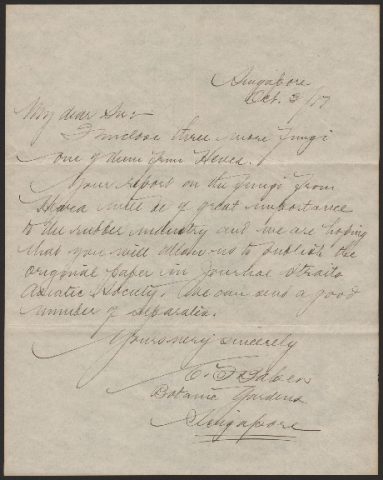 Singapore
Oct. 3/17
My dear Sir
I inclose three more fungi
one of them from Hevea.
Your report on the fungi from
Hevea will be of great importance
to the rubber industry and we are hoping
that you will allow us to publish the
origonal paper in Journal Straits
Asiatic Society. We can send a good
number of separates.
Yours very sincerely
C. F. Baker
Botanic Gardens
Singapore